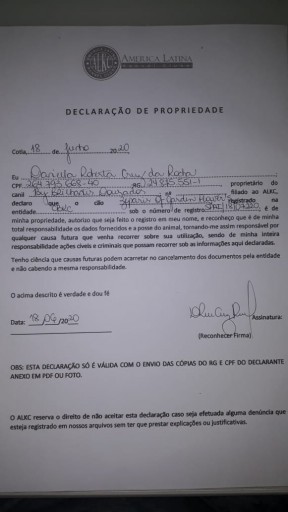 ALKC
AMERICA LATINA
KENNEL CLUBE
DECLARAÇÃO DE PROPRIEDADE
Cotia, 18 de Junho 2020
Eu Daniella Roberta Cruz da Rocha
CPF RG proprietário do
canil filiado ao ALKC,
declaro que o cão Of Garden House registrado na
entidade CBKC sob o número de registro é de
minha propriedade, autorizo que seja feito o registro em meu nome, e reconheço que é de minha
total responsabilidade os dados fornecidos e a posse do animal, tornando-me assim responsável por
qualquer causa futura que venha recorrer sobre sua utilização, sendo de minha inteira
responsabilidade ações cíveis e criminais que possam recorrer sob as informações aqui declaradas.
Tenho ciência que causas futuras podem acarretar no cancelamento dos documentos pela entidade
e não cabendo a mesma responsabilidade.
O acima descrito é verdade e dou fé
Data: 18/06/2020 Assinatura:
(Reconhecer Firma)
OBS: ESTA DECLARAÇÃO SÓ É VÁLIDA COM O ENVIO DAS CÓPIAS DO RG E CPF DO DECLARANTE
ANEXO EM PDF OU FOTO.
O ALKC reserva o direito de não aceitar esta declaração caso seja efetuada alguma denúncia que
esteja registrado em nossos arquivos sem ter que prestar explicações ou justificativas.